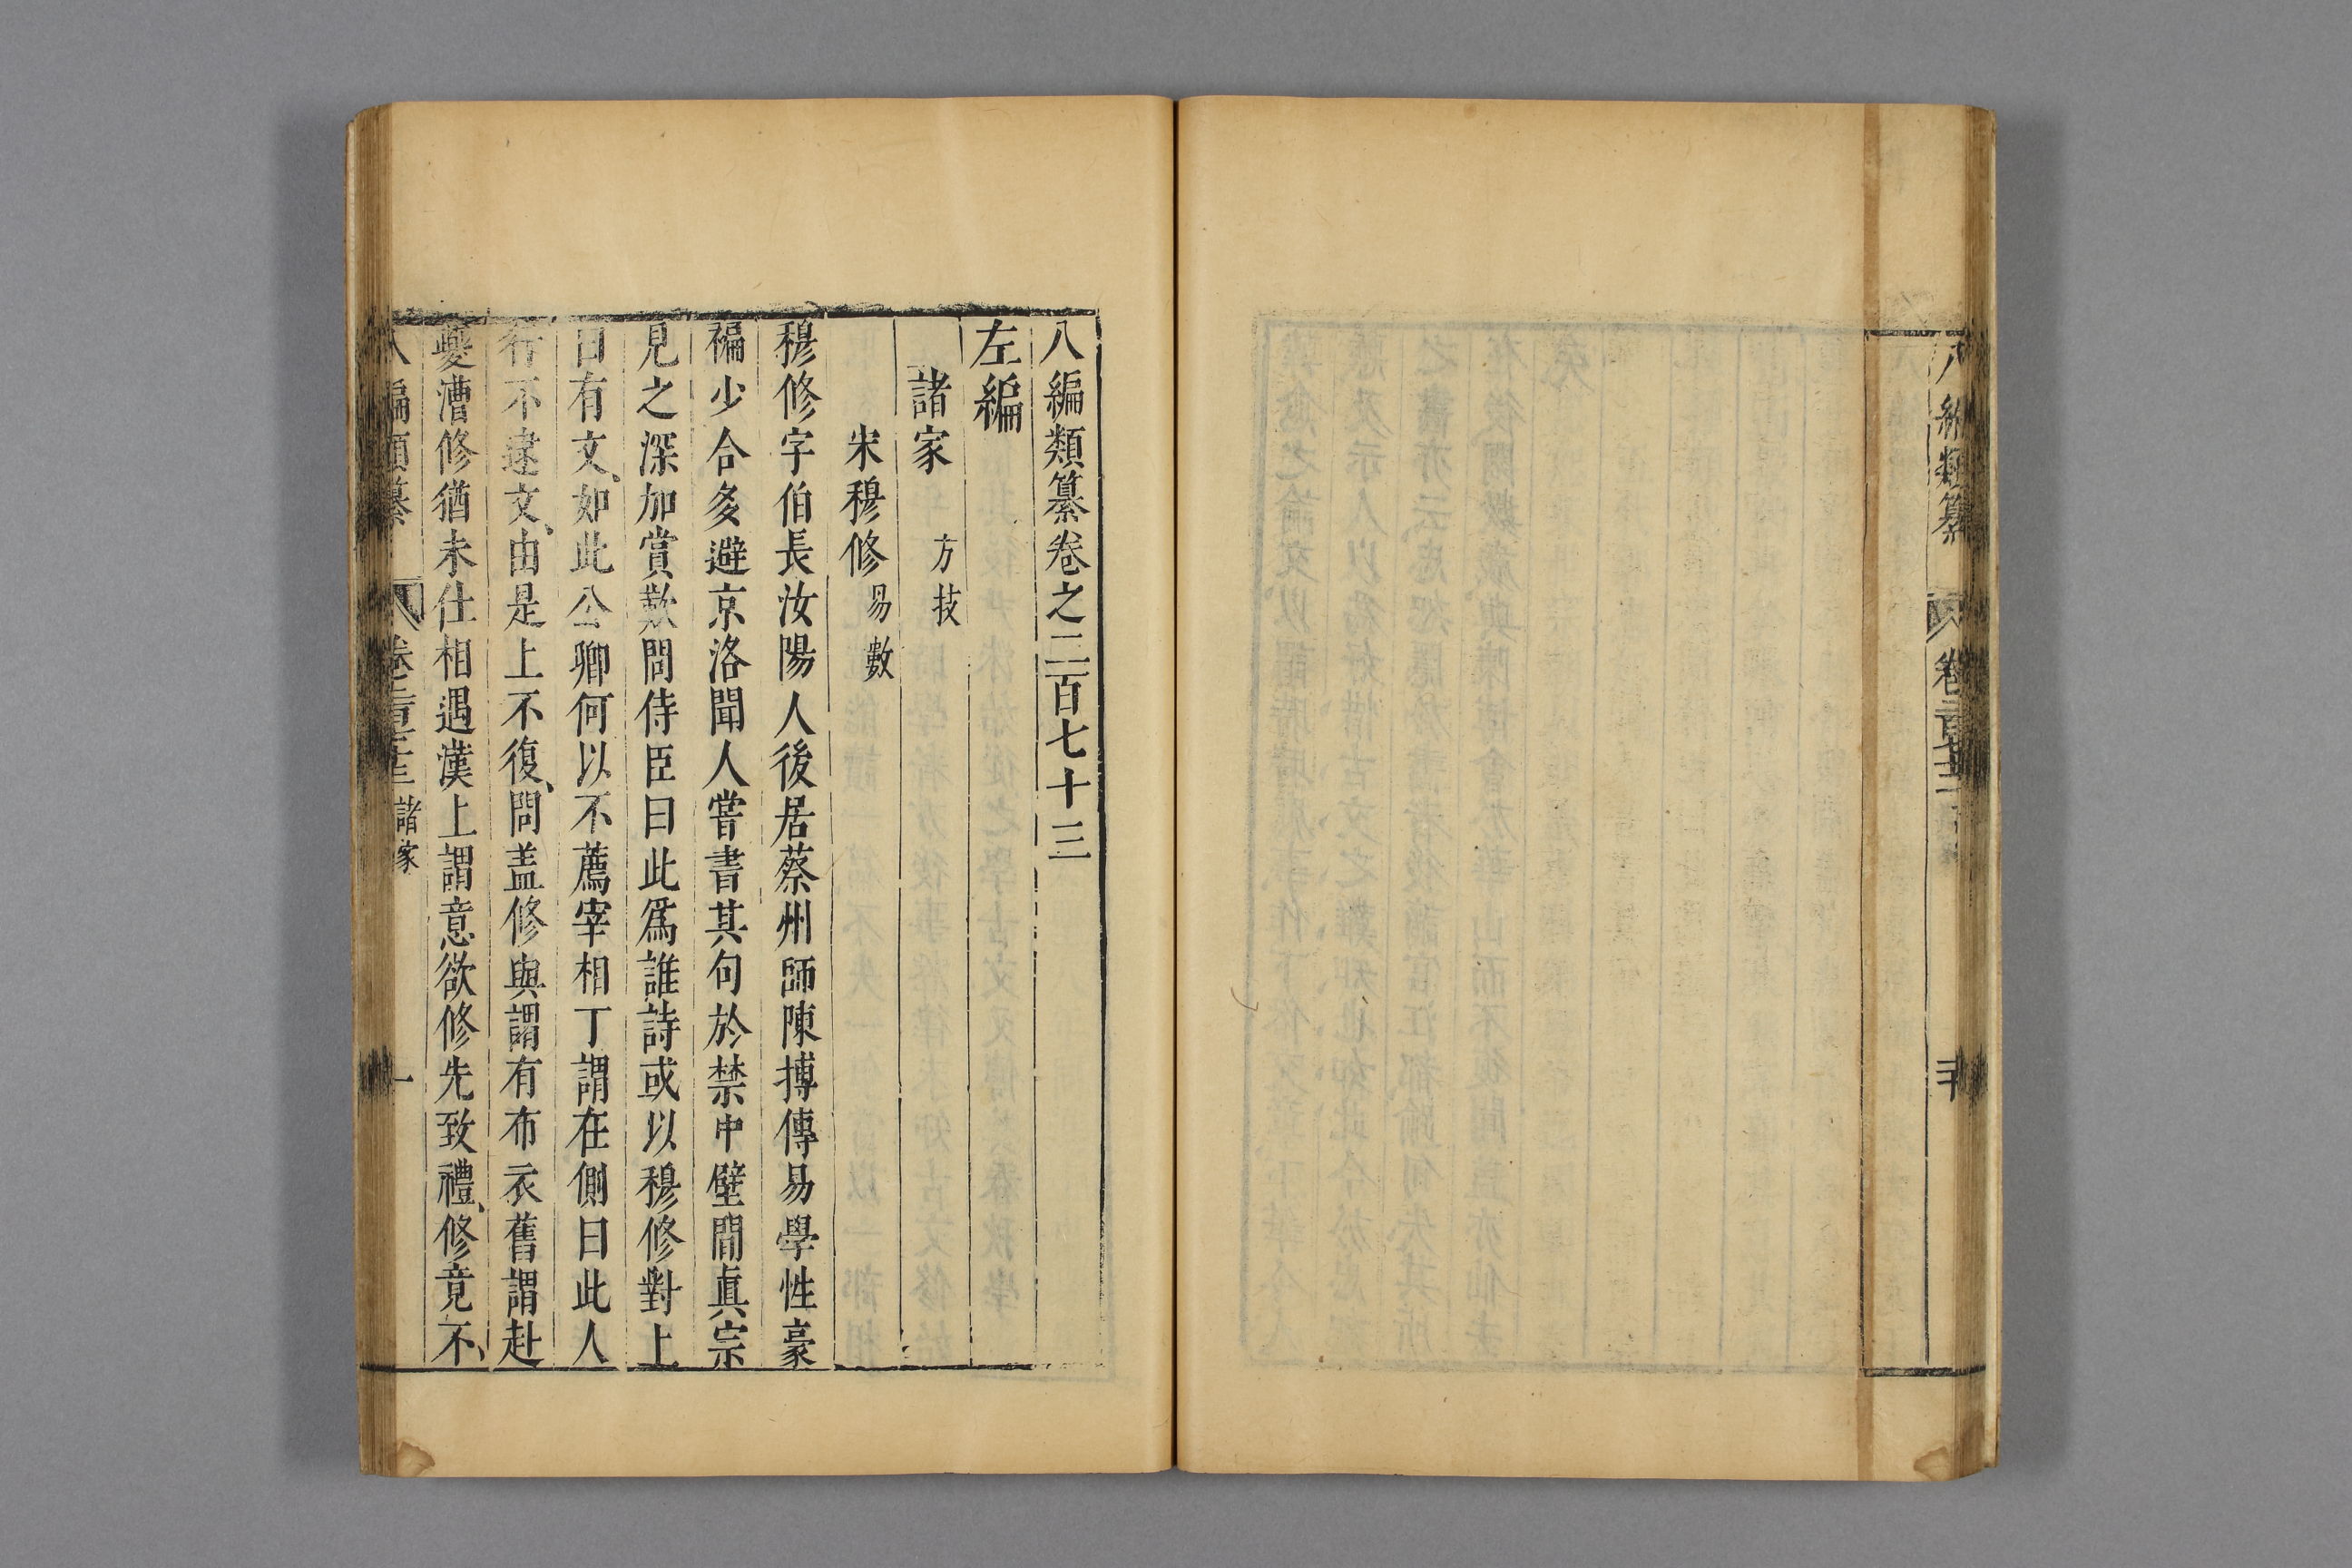 八編類纂卷之二百七十三
左編
諸家 方技
宋穆修 易數
穆修字伯長汝陽人後居蔡州師陳摶傳易學性豪
褊少合多避京洛聞人嘗書其句於禁中壁間眞宗
見之深加賞歎問侍臣曰此爲誰詩或以穆修對上
曰有文如此公卿何以不薦宰相丁謂在側曰此人
行不逮文、由是上不復、問盖修與謂有布衣舊謂赴
夔漕修猶未仕相遇漢上謂意欲修先致禮、修竟不、
八編類纂 卷二百七十三 諸家 一